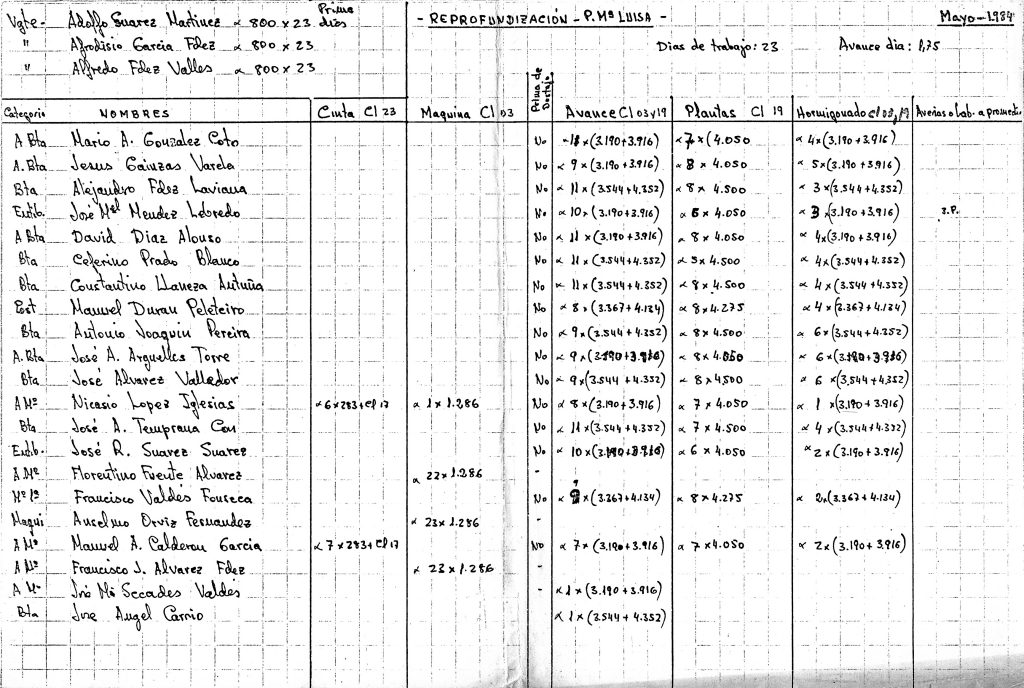 Vgte- Adolfo Suarez Martinez α 800 x 23 Prima dias
- REPROFUNDIZACIÓN - P. Mª LUISA -
Mayo-1984
" Afrodisio Garcia Fdez α 800 x 23
Dias de trabajo: 23 Avance dia: 1,75
" Alfredo Fdez Valles α 800 x 23
Categoria NOMBRES Cinta Cl 23 Maquina Cl 03 Prima de Destajo Avance Cl 03 y 19 Plantas Cl 19 Hormigonado Cl 03, 19 Averias o Lab. a promedio
A Bta Mario A. Gonzalez Coto No x (3.190+3.916) α 7 x (4.050 α 4x(3.190+3.916)
A. Bta Jesus Gainzas Varela No α 9 x (3.190+3.916) α 8 x 4.050 α 5x(3.190+3.916)
Bta Alejandro Fdez Laviana No α 11 x (3.544+4.352) α 8 x 4.500 α 3x(3.544+4.352)
Entib. José Mel Mendez Lobredo No α 10x (3.190+3.916) α 6 x 4.050 α 3x(3.190+3.916) 2.P.
A Bta David Diaz Alonso No α 11 x (3.190+3.916) α 8 x 4.050 α 4x(3.190+3.916)
Bta Ceferino Prado Blanco No α 11 x (3.544+4.352) α 5 x 4.500 α 4x(3.544+4.352)
Bta Constantino Llaneza Antuña No α 11 x (3.544+4.352) α 8 x 4.500 α 4 x (3.544+4.352)
Ent Manuel Duran Peleteiro No α 8 x (3.367+4.134) α 8 x 4.275 α 4 x (3.367+4.134)
Bta Antonio Joaquin Pereira No α 9 x (3.544+4.352) α 8 x 4.500 α 6 x (3.544+4.352)
A. Bta José A. Arguelles Torre No α 9 x (3.190+3.916) α 8 x 4.050 α 6 x (3.190+3.916)
Bta José Alvarez Vallador No α 9 x (3.544+4.352) α 8 x 4500 α 6 x (3.544+4.352)
A Mº Nicasio Lopez Iglesias α 6 x 283 + Cl 17 α 1 x 1.286 No α 8 x (3.190+3.916) α 7 x 4.050 α 1 x (3.190+3.916)
Bta José A. Temprana Con No α 11 x (3.544+4.352) α 7 x 4.500 α 4 x (3.544+4.352)
Entib. José R. Suarez Suarez No α 10 x (3.190+3.916) α 6 x 4.050 α 2 x (3.190+3.916)
A.Mº Florentino Fuente Alvarez α 22 x 1.286 -
Mº 1ª Francisco Valdés Fonseca No α 9 x (3.367+4.134) α 8 x 4.275 α 2x(3.367+4.134)
Maqui Anselmo Orviz Fernandez α 23 x 1.286 -
A Mº Manuel A. Calderon Garcia α 7 x 283 + Cl 17 No α 7 x (3.190+3.916) α 7 x 4.050 α 2 x (3.190+3.916)
A Mº Francisco J. Alvarez Fdez α 23 x 1.286 -
A Mº José Mª Secades Valdés - α 1 x (3.190+3.916)
Bta Jose Angel Carrio α 1 x (3.544+4.352)